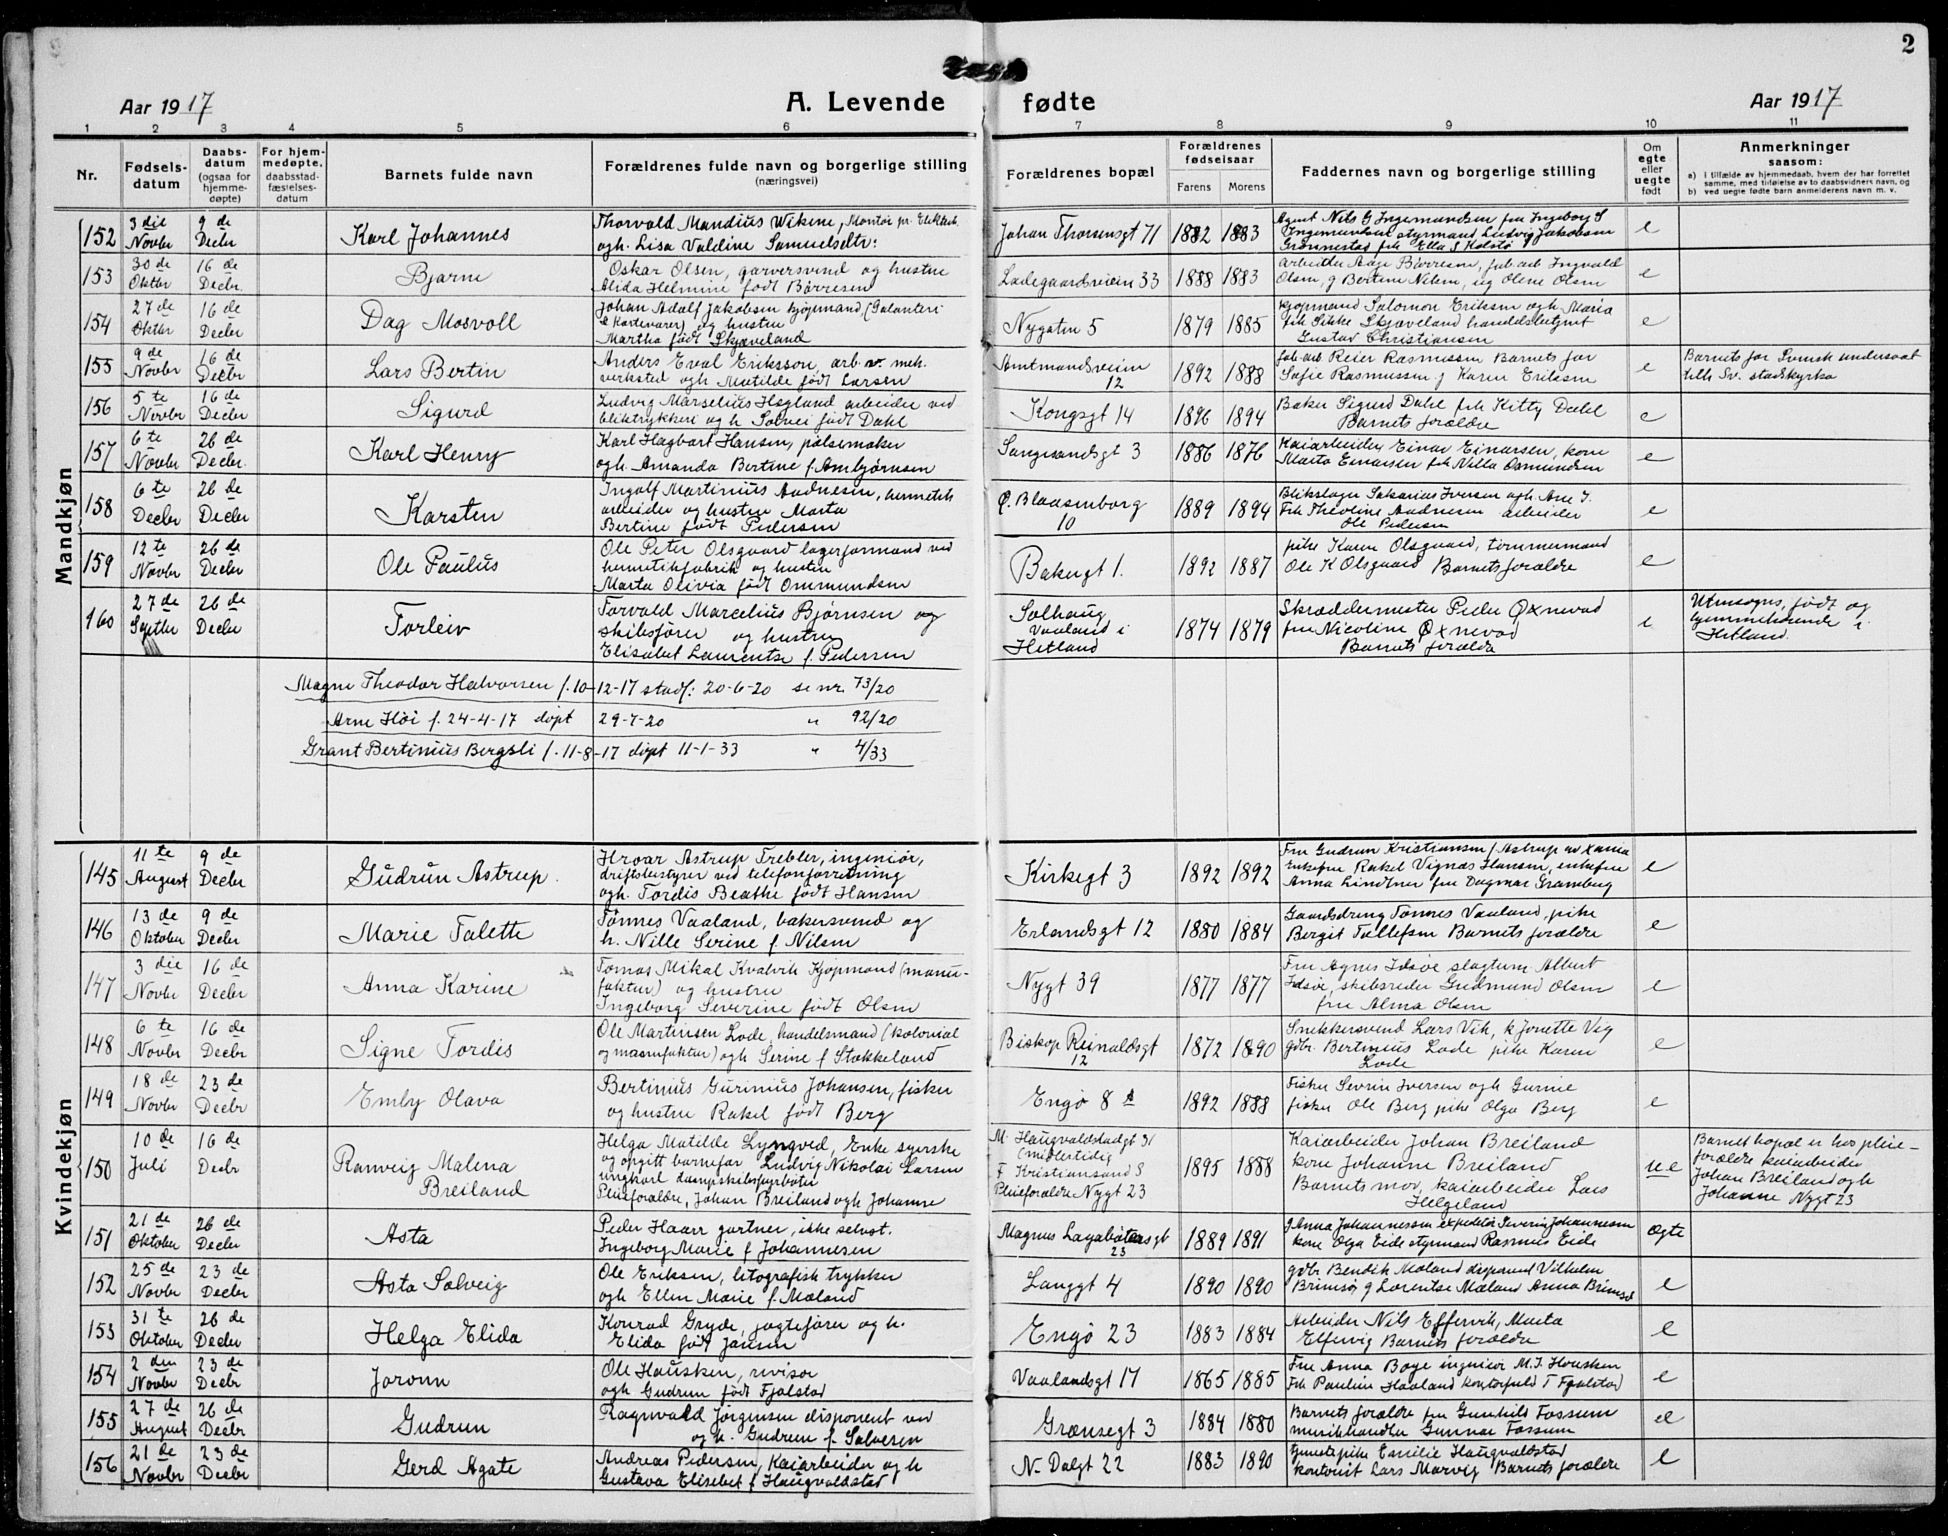 2
Aar 1917
A. Levende
fødte
Aar 1917
1 2 3 4 5 6 7 8 9 10 11
Nr.
Fødsels-
datum
Daabs-
datum
(ogsaa for
hjemme-
døpte)
For hjem-
medøpte,
daabsstad-
fæstelses-
datum
Barnets fulde navn
Forældrenes fulde navn og borgerlige stilling
(næringsvei)
Forældrenes bopæl
Forældrenes
fødselsaar
Farens Morens
Faddernes navn og borgerlige stilling
Om
egte
eller
uegte
født
Anmerkninger
saasom:
a) i tilfælde av hjemmedaab, hvem der har forrettet
samme, med tilføielse av to daabsvidners navn, og
b) ved uegte fødte barn anmelderens navn m. v.
Mandkjøn
152
3die Novbr
9de Decbr
Karl Johannes
Thorvald Mandius Wikene, Montør pr. Elektech.
ogh. Lisa Valdine Samuelsdtr:
Johan Thorsensgt 71
1882 1883
Agent Nils G Ingemundsen fru Ingeborg S
Ingemundsen styrmand Ludvig Jakobsen
Grønnestad frk Ella S Kolstø
e
153
30de Oktbr
16de Decbr.
Bjarne
Oskar Olsen, garversvend og hustru
Alida Helmine født Børresen
Ladegaardsveien 33
1888 1883
Arbeider Aage Børresen, fab.arb. Ingvald
Olsen, g Bertine Nilsen, ug Olene Olsen
e
154
27de Oktbr
16de Decbr
Dag Mosvoll
Johan Adolf Jakobsen kjøpmand (Galanteri
& Kortevarer) og hustru
Martha født Skjæveland
Nygaten 5
1879 1885
Kjøpmand Salomon Eriksen ogh. Maria
frk Sikke Skjæveland handelsbetjent
Gustav Christiansen
e
155
9de Novbr
16de Decbr
Lars Bertin
Anders Eval Eriksson, arb. v. mek.
verksted ogh Matilde født Larsen
Amtmandsveien
12
1892 1888
fab-arb Reier Rasmussen Barnets far
Sofie Rasmussen g Karen Eriksen
e
Barnets far Svensk undersaat
tilh. Sv. stadskyrka
156
5te Novbr
16de Decbr
Sigurd
Ludvig Marselius Hegland arbeider ved
bliktrykkeri og h Solvei født Dahl
Kongsgt 14
1896 1894
Baker Sigurd Dahl frk Kitty Dahl
Barnets forældre
e
157
6te Novbr
26de Decbr.
Karl Henry
Karl Hagbart Hansen, pølsemaker
ogh. Amanda Bertine f. Ambjørnsen
Sangesandsgt 3
1886 1876
Kaiarbeider Einar Einarsen, kone
Marta Einarsen frk Nilla Osmundsen
e
158
6te Decbr
26de Decbr
Karsten
Ingolf Martinius Andnesen, hermetik
arbeider og hustru Marta
Bertine født Pedersen
Ø. Blaasenborg
10
1889 1894
Blikslager Sakarias Iversen ogh. Ane I.
Frk Theoline Andnesen arbeider
Ole Pedersen
e
159
12te Novbr
26de Decbr
Ole Paulus
Ole Peter Olsgaard lagerformand ved
hermetikfabrik og hustru
Marta Olivia født Ommundsen
Bakergt 1.
1892 1887
pike Karen Olsgaard, tømmermand
Ole K Olsgaard Barnets forældre
e
160
27de Septbr
26de Decbr
Torleiv
Torvald Marcelius Bjørnsen og
skibsfører og hustru
Elisabet Laurentse f. Pedersen
Solhaug
Vaaland i
Hetland
1874 1879
Skræddermester Peder Øxnevad
fru Nicoline Øxnevad
Barnets forældre
e
Utensogns, født og
hjemmehørende i
Hetland.
Magne Theodor Halvorsen f. 10-12-17 stadf: 20-6-20 se nr. 73/20
Arne Høi f. 24-4-17 døpt 29-7-20 " 92/20
Grant Bertinius Bergsli f. 11-8-17 døpt 11-1-33 " 4/33
Kvindekjøn
145
11te August
9de Decbr
Gudrun Astrup.
Hroar Astrup Trebler, ingeniør,
driftsbestyrer ved telefonforretning
ogh. Tordis Beathe født Hansen
Kirkegt 3
1892 1892
Fru Gudrun Kristiansen f Astrup av Xania
Enkefru Rakel Vignæs Hansen, enkefru
Anna Lindtner fru Dagmar Gramberg
e
146
13de Oktober
9de Decbr
Marie Talette
Tønnes Vaaland, bakersvend og
h. Nille Serine f. Nilsen
Erlandsgt 12
1880 1884
Gaardsdreng Tønnes Vaaland, pike
Bergit Tallefsen Barnets forældre
e
147
3die Novbr
16de Decbr
Anna Karine
Tomas Mikal Kvalvik Kjøpmand (manu-
faktur) og hustru
Ingeborg Severine født Olsen
Nygt 39
1877 1877
Fru Agnes Idsøe slagterm. Albert
Idsøe, skibsreder Gudmund Olsen
fru Alma Olsen
e
148
6te Novbr
16de Decbr
Signe Tordis
Ole Martinsen Lode, handelsmand (kolonial
og manufaktur) ogh Serine f Stokkeland
Biskop Reinaldsgt
12
1872 1890
Snekkersvend Lars Vik, k Jonette Vig
gdbr. Bertinius Lode pike Karen
Lode
e
149
18de Novbr
23de Decbr
Emby Olava
Bertinius Gurinius Johansen, fisker
og hustru Rakel født Berg
Engø 8 A
1892 1888
Fisker Sevrin Iversen ogh Gurine
fisker Ole Berg pike Olga Berg
e
150
10de Juli
16de Decbr
Ranveig Malena
Breiland
Helga Matilde Lyngved, Enke syerske
og opgitt barnefar Ludvig Nikolai Larsen
ungkarl dampskibsfyrbøter
Pleieforældre, Johan Breiland ogh Johanne
M. Haugvaldstadgt 31
(midlertidig
F. Kristiansand S
Pleieforældre Nygt 23
1895 1888
Kaiarbeider Johan Breiland
kone Johanne Breiland
Barnets mor, kaiarbeider Lars
Helgeland
u.e
Barnet bopæl er hos pleie-
forældre kaiarbeider
Johan Breiland ogh
Johanne Nygt 23
151
21de Oktober
26de Decbr
Asta
Peder Haarr gartner, ikke selvst.
Ingeborg Marie f Johannesen
Magnus Lagabøtersgt
23
1889 1891
g Anna Johannessen expeditør Severin Johannesen
kone Olga Eide styrmand Rasmus Eide
Ægte
152
25de Novbr
23de Decbr
Asta Solveig
Ole Eriksen, litografisk trykker
ogh. Ellen Marie f. Mæland
Langgt 4
1890 1890
gdbr Bendik Mæland disponent Vilhelm
Brimsø g Lorentse Mæland Anna Brimsø
e
153
31te Oktober
26de Decbr
Helga Elida
Konrad Gryde, jagtefører og h.
Elida født Jansen
Engø 23
1883 1884
Arbeider Nils Effervik, Marta
Effervig Barnets forældre
e
154
2den Novbr
23de Decbr
Jorunn
Ole Hausken, revisor
ogh. Gudrun født Fjalstad
Vaalandsgt 17
1865 1885
Fru Anna Boye ingeniør M.I. Housken
Frk Pauline Haaland kontorfuld T Fjalstad
e
155
27de August
26de Decbr
Gudrun
Ragnvald Jørgensen disponent ved
og h. Gudrun f. Salvesen
Grænsegt 3
1884 1880
Barnets forældre fru Gunhild Fossum
musikhandler Gunnar Fossum
e
156
21de Novbr
23de Decbr
Gerd Agate
Andreas Pedersen, Kaiarbeider og h
Gustava Elisebet f Haugvaldstad
N. Dalgt 22
1883 1890
tjenestepike Emilie Haugvaldstad
kontorist Lars Marvig Barnets forældre
e